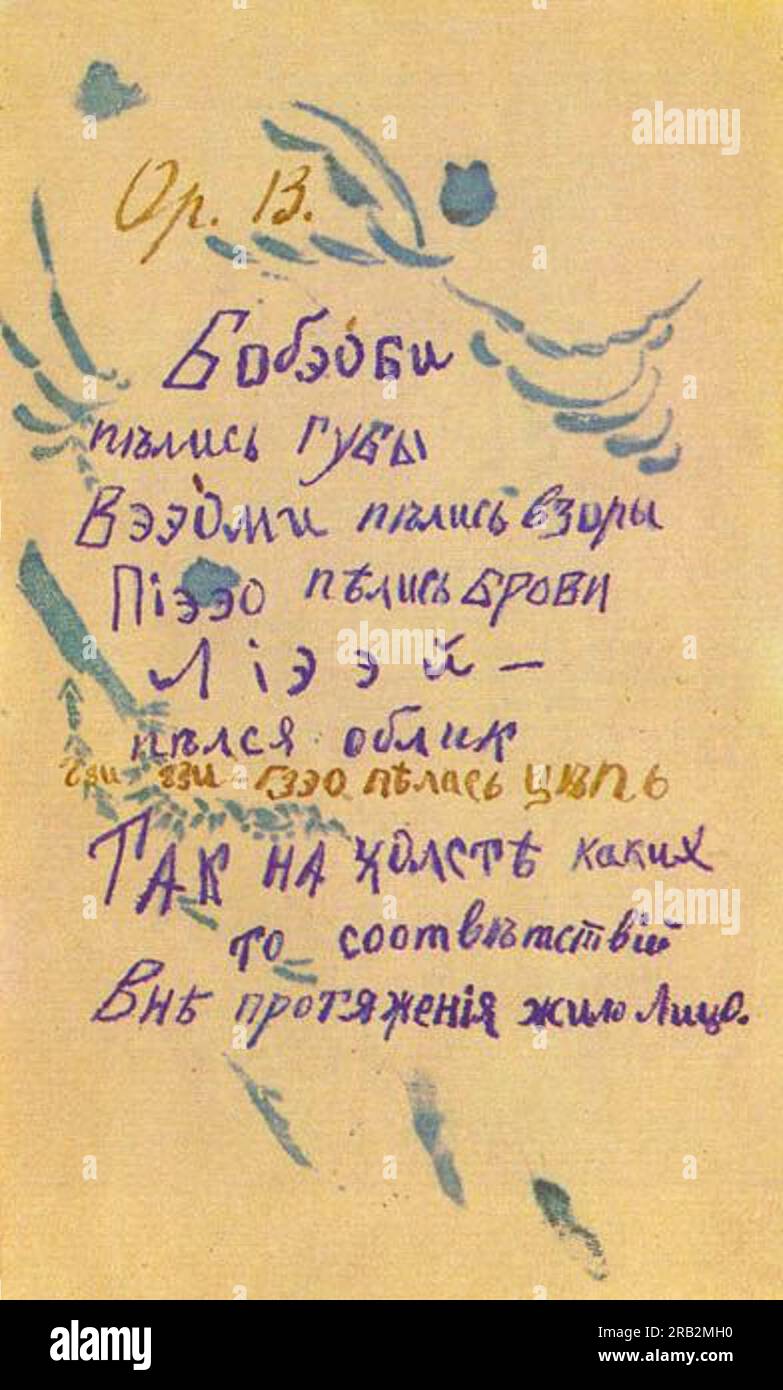 Op. 13.
Бобэоби
пѣлись губы
Вээоми пѣлись взоры
Піээо пѣлись брови
Ліээй —
пѣлся облик
Гзи - гзи - гзэо пѣлась цѣпь
Так на холстѣ каких
то соотвѣтствій
Внѣ протяженія жило Лицо.
alamy
Image ID: 2RB2MH0
www.alamy.com